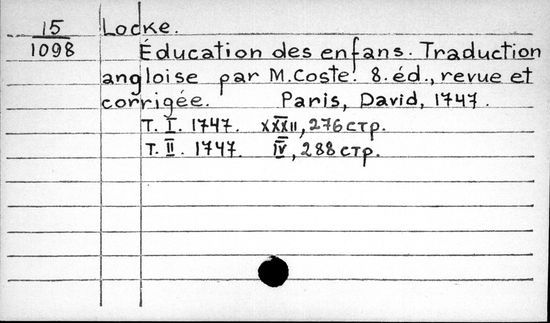 15 Locke.
1098
Éducation des enfans. Traduction
angloise par M. Coste. 8. éd., revue et
corrigée. Paris, David, 1747.
T. I. 1747. XXXII, 276 стр.
T. II. 1747. IV, 288 стр.